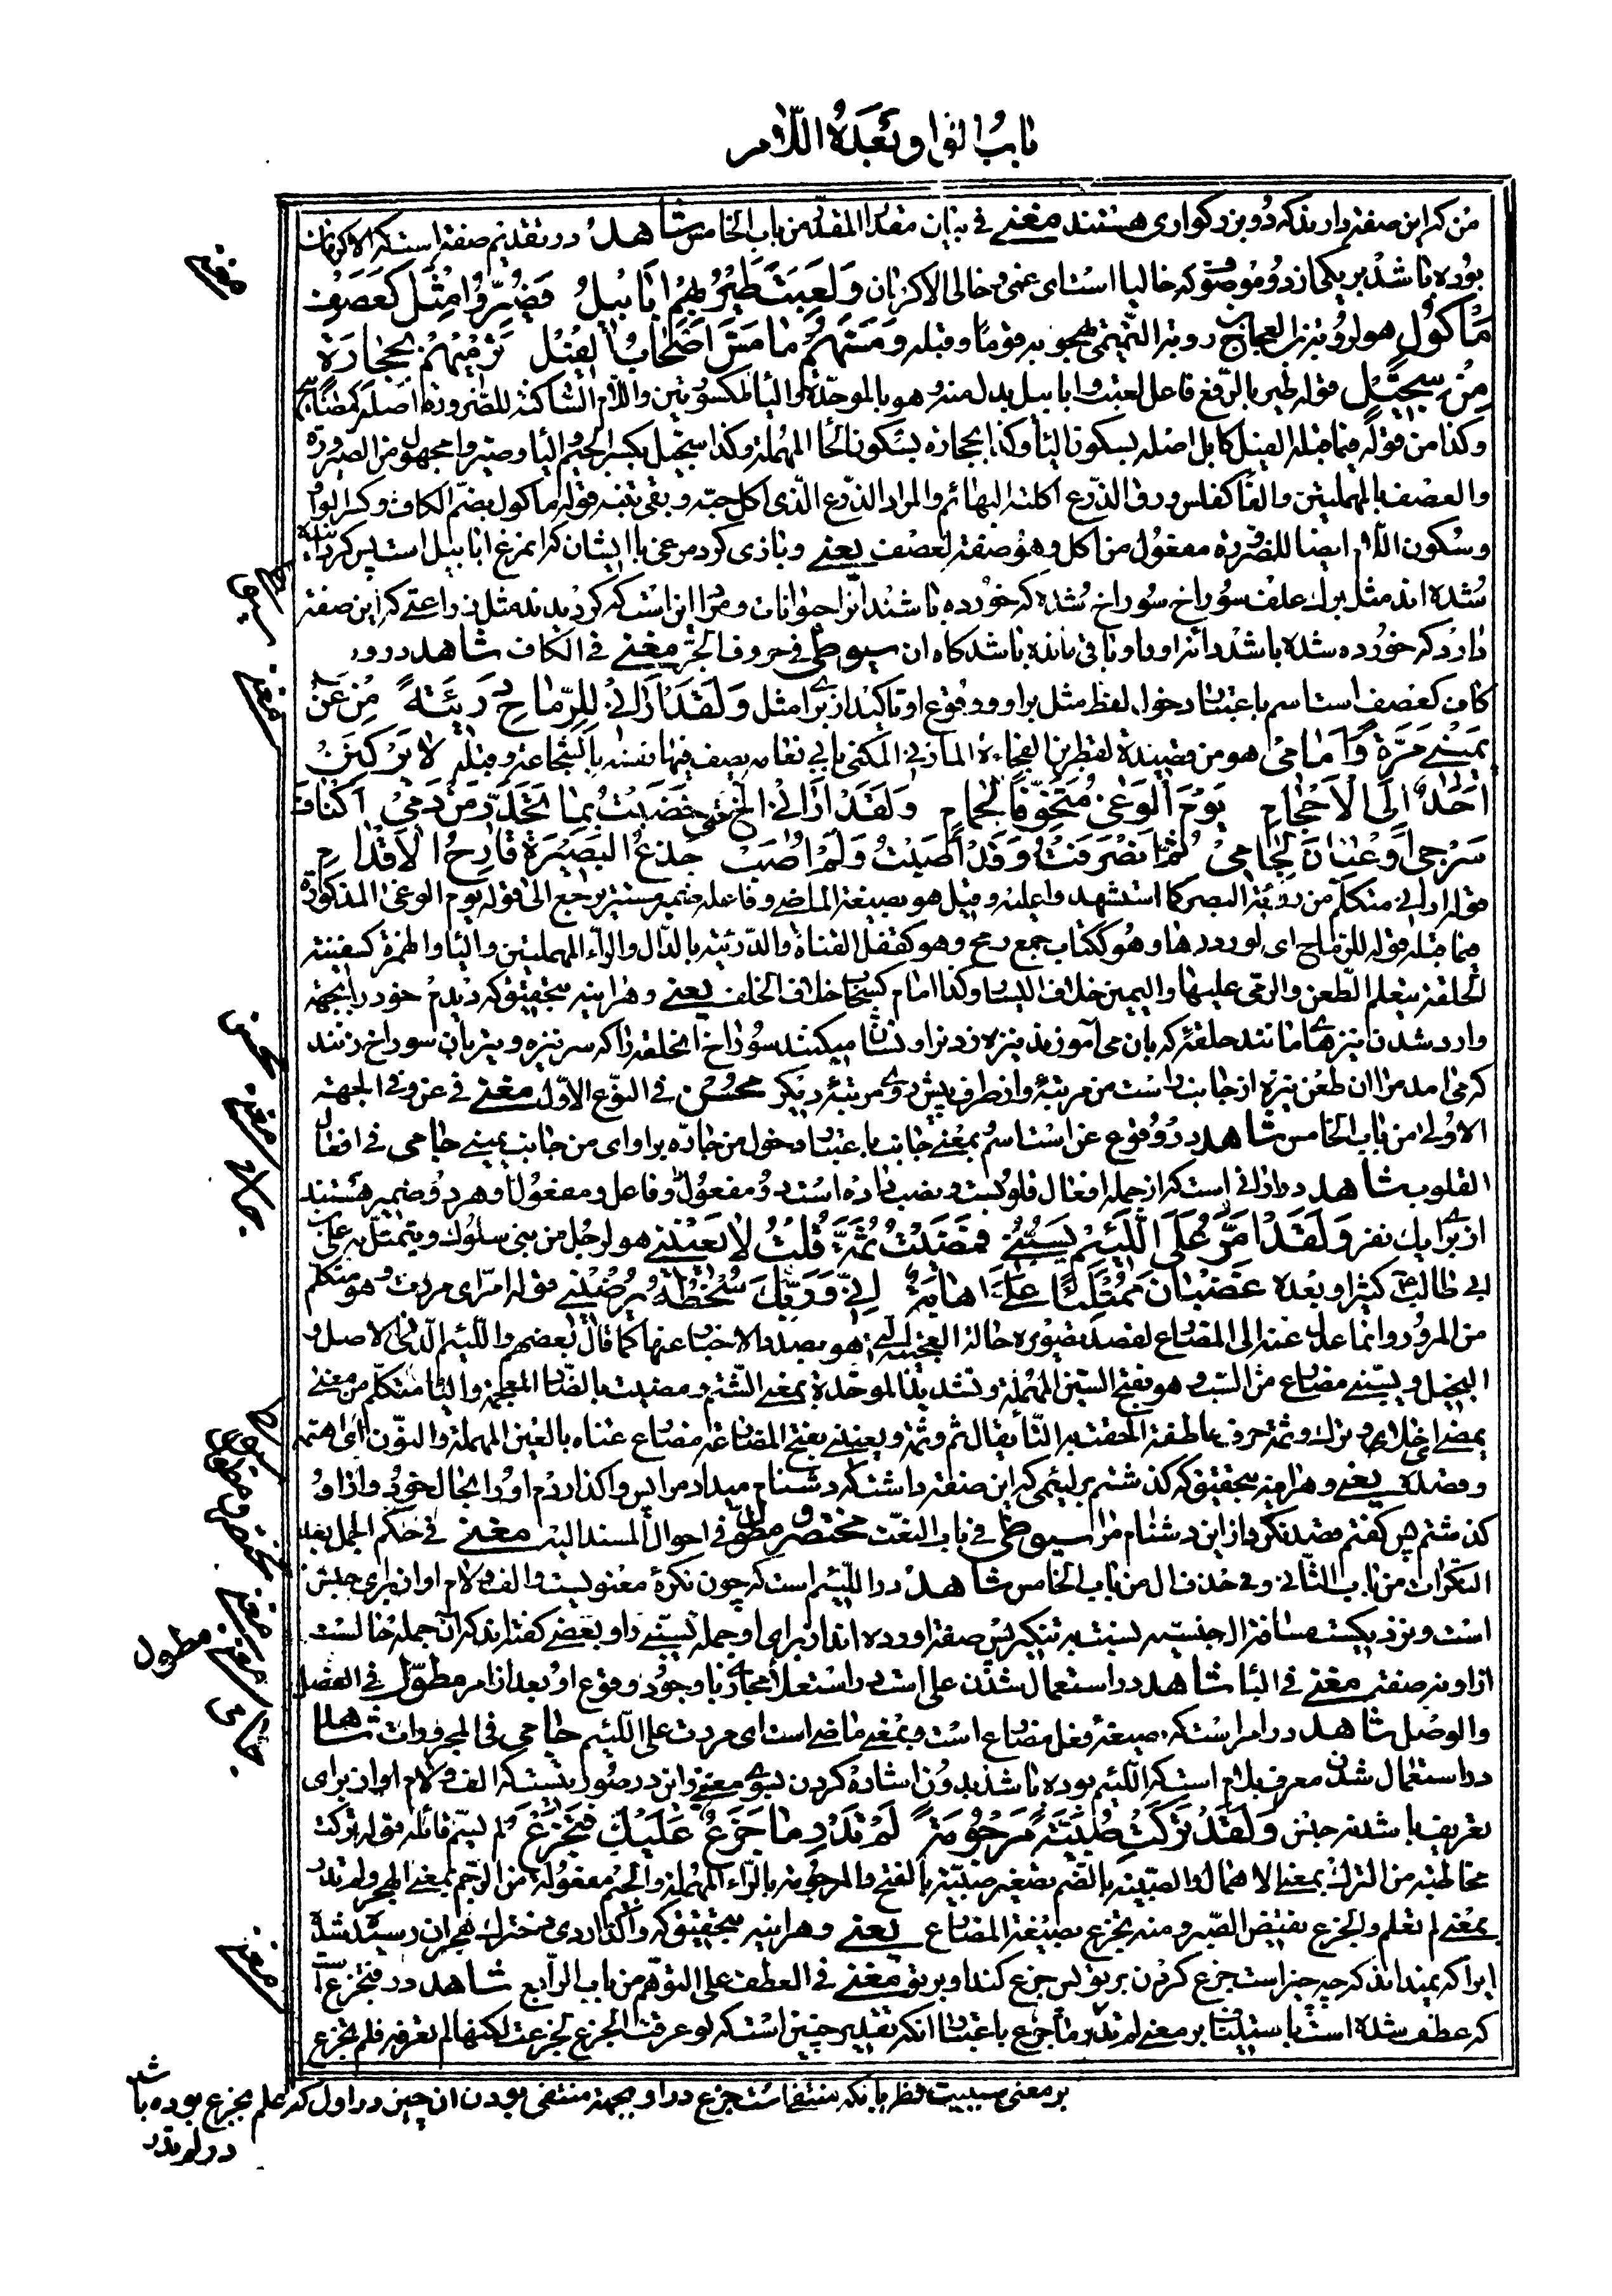 باب الواو بعده اللام
من که این صفة دارند که دو بزرگواری هستند مغنی فی بیان مقدار المقدر من باب الخامس شاهد در تقدیم صفة است که الاکرمان
بوده باشد بر یکی از دو موصوف که خالیا است ای عمی و خالی الاکرمان وَلَعِبَتْ طَيْرٌ بِهِمْ أَبَابِيلُ فَصُيِّرُوا مِثْلَ كَعَصْفٍ
مَأْكُولٍ هو لرؤبة بن العجاج بن روبة التمیمی یهجو به قوما و قبله وَمَسَّهُمْ مَا مَسَّ أَصْحَابَ الْفِيلِ تَرْمِيهِمْ بِحِجَارَةٍ
مِنْ سِجِّيلٍ قوله طیر بالرفع فاعل لعبت و ابابیل بدل منه و هو بالموحدة و الیاء المکسورتین و اللام الساکنة للضرورة اصله کمصابیح
و کذا من قوله فیما قبله الفیل کابل اصله بسکون الیاء و کذا بحجارة بسکون الحاء المهملة و کذا سجیل بکسر الجیم و الیاء و صیروا مجهول من الصیرورة
و العصف بالمهملتین و الفاء کفلس ورق الزرع اکلته البهائم و المراد الزرع الذی اکل حبه و بقی تبنه قوله ماکول بضم الکاف و کسر الواو
و سکون اللام ایضا للضرورة مفعول من اکل و هو صفة لعصف یعنی و بازی کرد مرغی با ایشان که مرغ ابابیل است پس کردانیده
شده اند مثل برك علف سوراخ سوراخ شده که خورده باشند آنرا حیوانات و مراد این است که کردیدند مثل زراعتی که این صفة
دارد که خورده شده باشد دانه او و باقی مانده باشد کاه ان سیوطی فی حروف الجر مغنی فی الکاف شاهد در ورود
کاف کعصف است اسم باعتبار دخول لفظ مثل بر او و وقوع او تاکید از برای مثل وَلَقَدْ أَرَانِي لِلرِّمَاحِ دَرِيئَةً مِنْ عَنْ
يَمِينِي مَرَّةً وَأَمَامِي هو من قصیدة لقطری بن الفجاءة المازنی المکنی بابی نعامه یصف فیها نفسه بالشجاعة و قبله لَا يَرْكَنَنْ
أَحَدٌ إِلَى الْإِحْجَامِ يَوْمَ الْوَغَى مُتَخَوِّفًا لِحِمَامِ وَلَقَدْ أَرَانِي الخ حَتَّى خَضَبْتُ بِمَا تَحَدَّرَ مِنْ دَمِي أَكْنَافَ
سَرْجِي أَوْ عِنَانَ لِجَامِي ثُمَّ انْصَرَفْتُ وَقَدْ أَصَبْتُ وَلَمْ أُصَبْ جَذَعَ الْبَصِيرَةِ قَارِحَ الْإِقْدَامِ
قوله ارانی متکلم من رؤیة البصر کما استشهد و اعلنه و قیل هو بصیغة الماضی و فاعله ضمیر مستتر یرجع الی قوله یوم الوغی المذکورة
فیما قبله قوله للرماح ای لورودها و هو ککتاب جمع رمح و هو کقفل القناة و الدریئة بالدال و الراء المهملتین و الیاء و الهمزة کسفینة
الحلقة یتعلم الطعن و الرمی علیها و الیمین خلاف الیسار و کذا امام کسحاب خلاف الخلف یعنی و هراینه بتحقیق که دیدم خود را بجهة
وارد شدن نیزها مانند حلقه که بان می آموزند نیزه زدن را و نشان میکنند سوراخ ان حلقه را که سر نیزه و تیر بان سوراخ زنند
که می امد مرا ان طعن نیزه از جانب راست من مرتبه و از طرف پیش روی مرتبه دیگر محسن فی النوع الاول مغنی فی عن و فی الجهة
الاولی من باب الخامس شاهد در وقوع عن است اسم بمعنی جانب باعتبار دخول من جاره بر او ای من جانب یمینی جامی فی افعال
القلوب شاهد در ارانی است که از جمله افعال قلوبست و نصب داده است دو مفعول را و فاعل و مفعول او هر دو ضمیر هستند
از برای یك نفر وَلَقَدْ أَمُرُّ عَلَى اللَّئِيمِ يَسُبُّنِي فَمَضَيْتُ ثُمَّتَ قُلْتُ لَا يَعْنِينِي هو لرجل من بنی سلول و یتمثل به علی بن
ابی طالب ع کثیرا و بعده غَضْبَانَ مُمْتَلِئًا عَلَيَّ إِهَابُهُ إِنِّي وَرَبِّكَ سُخْطُهُ يُرْضِينِي قوله امر ای مررت و هو متکلم
من المرور و انما عدل عنه الی المضارع لقصد تصویره حالة العجیبة التی هو بصدد الاخبار عنها کما قال بعضهم و اللئیم الدنی الاصل و
البخیل و یسبنی مضارع من السب و هو بفتح السین المهملة و تشدید الموحدة بمعنی الشتم و مضیت بالضاد المعجمة و الیاء متکلم من معنی
یمضی ای خلا و ترك و ثمت حرف عاطفة الحقت به التاء یقال ثم و ثمة و یعنینی بفتح المضارعة مضارع عناه بالعین المهملة و النون ای اهتم
و قصده یعنی و هراینه بتحقیق که کذشتم بر لئیمی که این صفة داشت که دشنام میداد مرا پس واکذاردم او را بحال خود و از او
کذشتم پس کفتم قصد نکرد از این دشنام مرا سیوطی فی باب النعت مختصر و مطول فی احوال المسند الیه مغنی فی حکم الجمل بعد
النکرات من باب الثانی و فی حذف ال من باب الخامس شاهد در اللئیم است که چون نکره معنویست و الف و لام او از برای جنس
است و نزدیکست مسافة ال جنسیه نسبت به تنکیر پس صفة اورده اند از برای او جمله یسبنی را و بعضی کفته اند که آن جمله حالست
از او نه صفة مغنی فی الباء شاهد در استعمال شدن علی است در استعلاء مجازی با وجود وقوع او بعد از امر مطول فی الفصل
و الوصل شاهد در امر است که صیغه فعل مضارع است و بمعنی ماضی است ای مررت علی اللئیم جامی فی المجرورات شاهد
در استعمال شدن معرف بلام است که اللئیم بوده باشد بدون اشاره کردن بسوی معینی و این در صورتیست که الف و لام او از برای
تعریف باشد نه جنس وَلَقَدْ تَرَكْتِ صُبَيَّةً مَرْحُومَةً لَمْ تَدْرِ مَا جَزَعٌ عَلَيْكِ فَتَجْزَعُ لم یسم قائله قوله ترکت
مخاطبة من الترك بمعنی الاهمال و الصبیة بالضم تصغیر صبیة بالفتح و المرحومة بالراء المهملة و الحاء مفعولة من الرحم بمعنی المهجر و لم تدر
بمعنی لم تعلم و الجزع نقیض الصبر و منه تجزع بصیغة المضارع یعنی و هراینه بتحقیق که واکذاردی دخترك هجران رسیده شده
ایرا که نمیداند که چه چیز است جزع کردن بر تو پس جزع کند او بر تو مغنی فی العطف علی التوهم من باب الرابع شاهد در فتجزع است
که عطف شده است باستیناف بر معنی لم تدر ما جزع باعتبار انکه تقدیر چنین است که لو عرفت الجزع لجزعت لکنها لم تعرفه فلم تجزع
بر معنی سببیت نظر بانکه منتفاست جزع در او بجهة منتفی بودن ان چیز در اول که علم بجزع بوده باشد
در لم تدر
مغنی
سیوطی
مغنی
محسن
مغنی
جامی
سیوطی
مختصر و مطول
مغنی
مغنی
مطول
جامی
مغنی